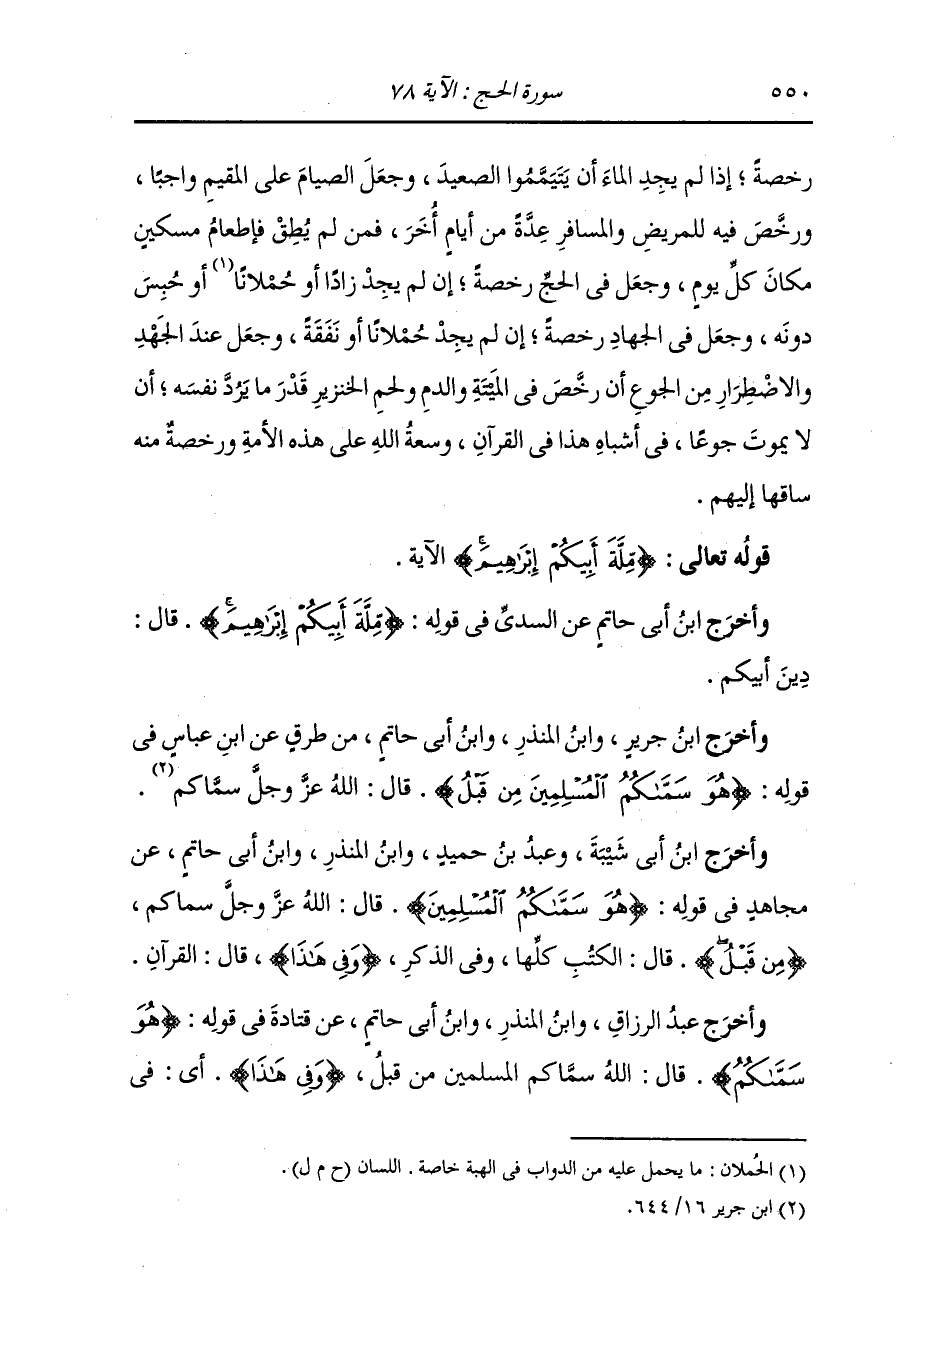 ٥٥٠ سورة الحج : الآية ٧٨
رخصةً ؛ إذا لم يجِدِ الماءَ أن يَتَيَمَّمُوا الصعيدَ ، وجعَلَ الصيامَ على المقيمِ واجبًا ،
ورخَّصَ فيه للمريضِ والمسافرِ عِدَّةً من أيامٍ أُخَرَ ، فمن لم يُطِقْ فإطعامُ مسكينٍ
مكانَ كلِّ يومٍ ، وجعَل فى الحجِّ رخصةً ؛ إن لم يجِدْ زادًا أو حُمْلانًا(١) أو حُبِسَ
دونَه ، وجعَل فى الجهادِ رخصةً ؛ إن لم يجِدْ حُمْلانًا أو نَفَقَةً ، وجعَل عندَ الجَهْدِ
والاضْطِرَارِ مِن الجوعِ أن رخَّصَ فى المَيْتَةِ والدمِ ولحمِ الخنزيرِ قَدْرَ ما يَرُدَّ نفسَه ؛ أن
لا يموتَ جوعًا ، فى أشباهِ هذا فى القرآنِ ، وسعةُ اللهِ على هذه الأمةِ ورخصةٌ منه
ساقها إليهم .
قولُه تعالى : ﴿مِّلَّةَ أَبِيكُمْ إِبْرَٰهِيمَۚ﴾ الآية .
وأخرَج ابنُ أبى حاتمٍ عن السدىِّ فى قولِه : ﴿مِّلَّةَ أَبِيكُمْ إِبْرَٰهِيمَۚ﴾ . قال :
دِينَ أبيكم .
وأخرَج ابنُ جريرٍ ، وابنُ المنذرِ ، وابنُ أبى حاتمٍ ، من طرقٍ عن ابنِ عباسٍ فى
قولِه : ﴿هُوَ سَمَّىٰكُمُ ٱلْمُسْلِمِينَ مِن قَبْلُ﴾ . قال : اللهُ عزَّ وجلَّ سمَّاكم(٢) .
وأخرَج ابنُ أبى شَيْبَةَ ، وعبدُ بنُ حميدٍ ، وابنُ المنذرِ ، وابنُ أبى حاتمٍ ، عن
مجاهدٍ فى قولِه : ﴿هُوَ سَمَّىٰكُمُ ٱلْمُسْلِمِينَ﴾ . قال : اللهُ عزَّ وجلَّ سماكم ،
﴿مِن قَبْلُ﴾ . قال : الكتُبِ كلِّها ، وفى الذكرِ ، ﴿وَفِى هَٰذَا﴾ ، قال : القرآنِ .
وأخرَج عبدُ الرزاقِ ، وابنُ المنذرِ ، وابنُ أبى حاتمٍ ، عن قتادةَ فى قولِه : ﴿هُوَ
سَمَّىٰكُمُ﴾ . قال : اللهُ سمَّاكم المسلمين من قبلُ ، ﴿وَفِى هَٰذَا﴾ . أى : فى
(١) الحُملان : ما يحمل عليه من الدواب فى الهبة خاصة . اللسان (ح م ل) .
(٢) ابن جرير ١٦/ ٦٤٤.